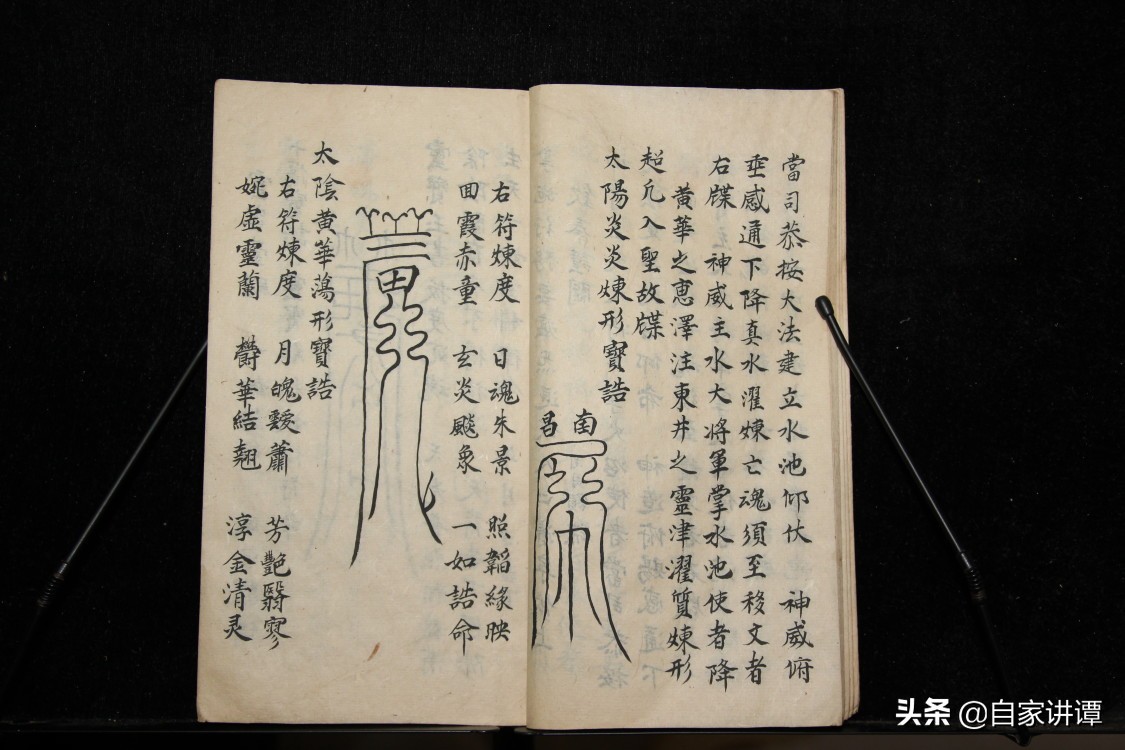 當司恭按大法建立水池仰伏 神威俯
垂感通下降真水濯煉亡魂須至移文者
右牒 神威主水大將軍掌水池使者降
黃華之恵澤注東井之靈津濯質煉形
超凡入聖故牒
太陽炎炎煉形寳誥
南昌
右符煉度 日魂朱景 照韜緑映
回霞赤童 玄炎飈象 一如誥命
太陰黃華蕩形寳誥
右符煉度 月魄蕭 芳艷翳寥
婉虛靈蘭 欝華結翹 淳金清灵
头条 @自家讲谭